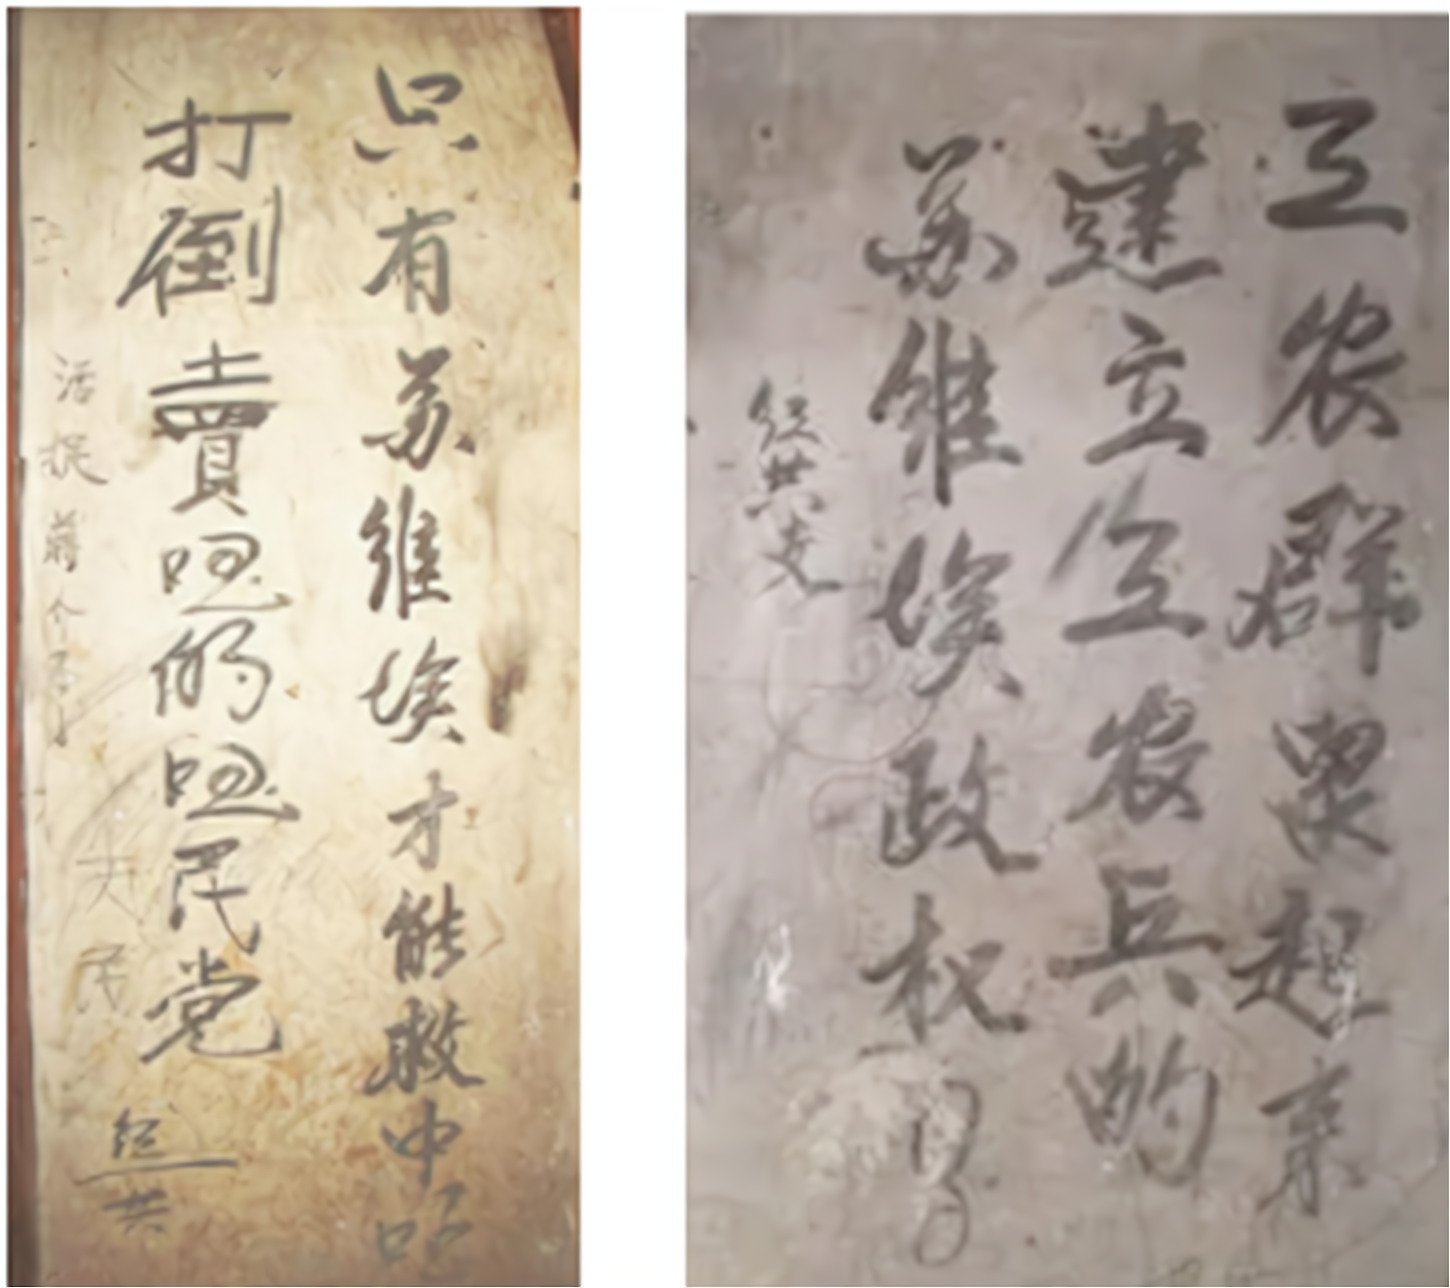 只有苏维埃才能救中国
打倒賣国的国民党
活捉蔣介石
红共
工农群眾起来
建立工农兵的
苏维埃政权!
红共支